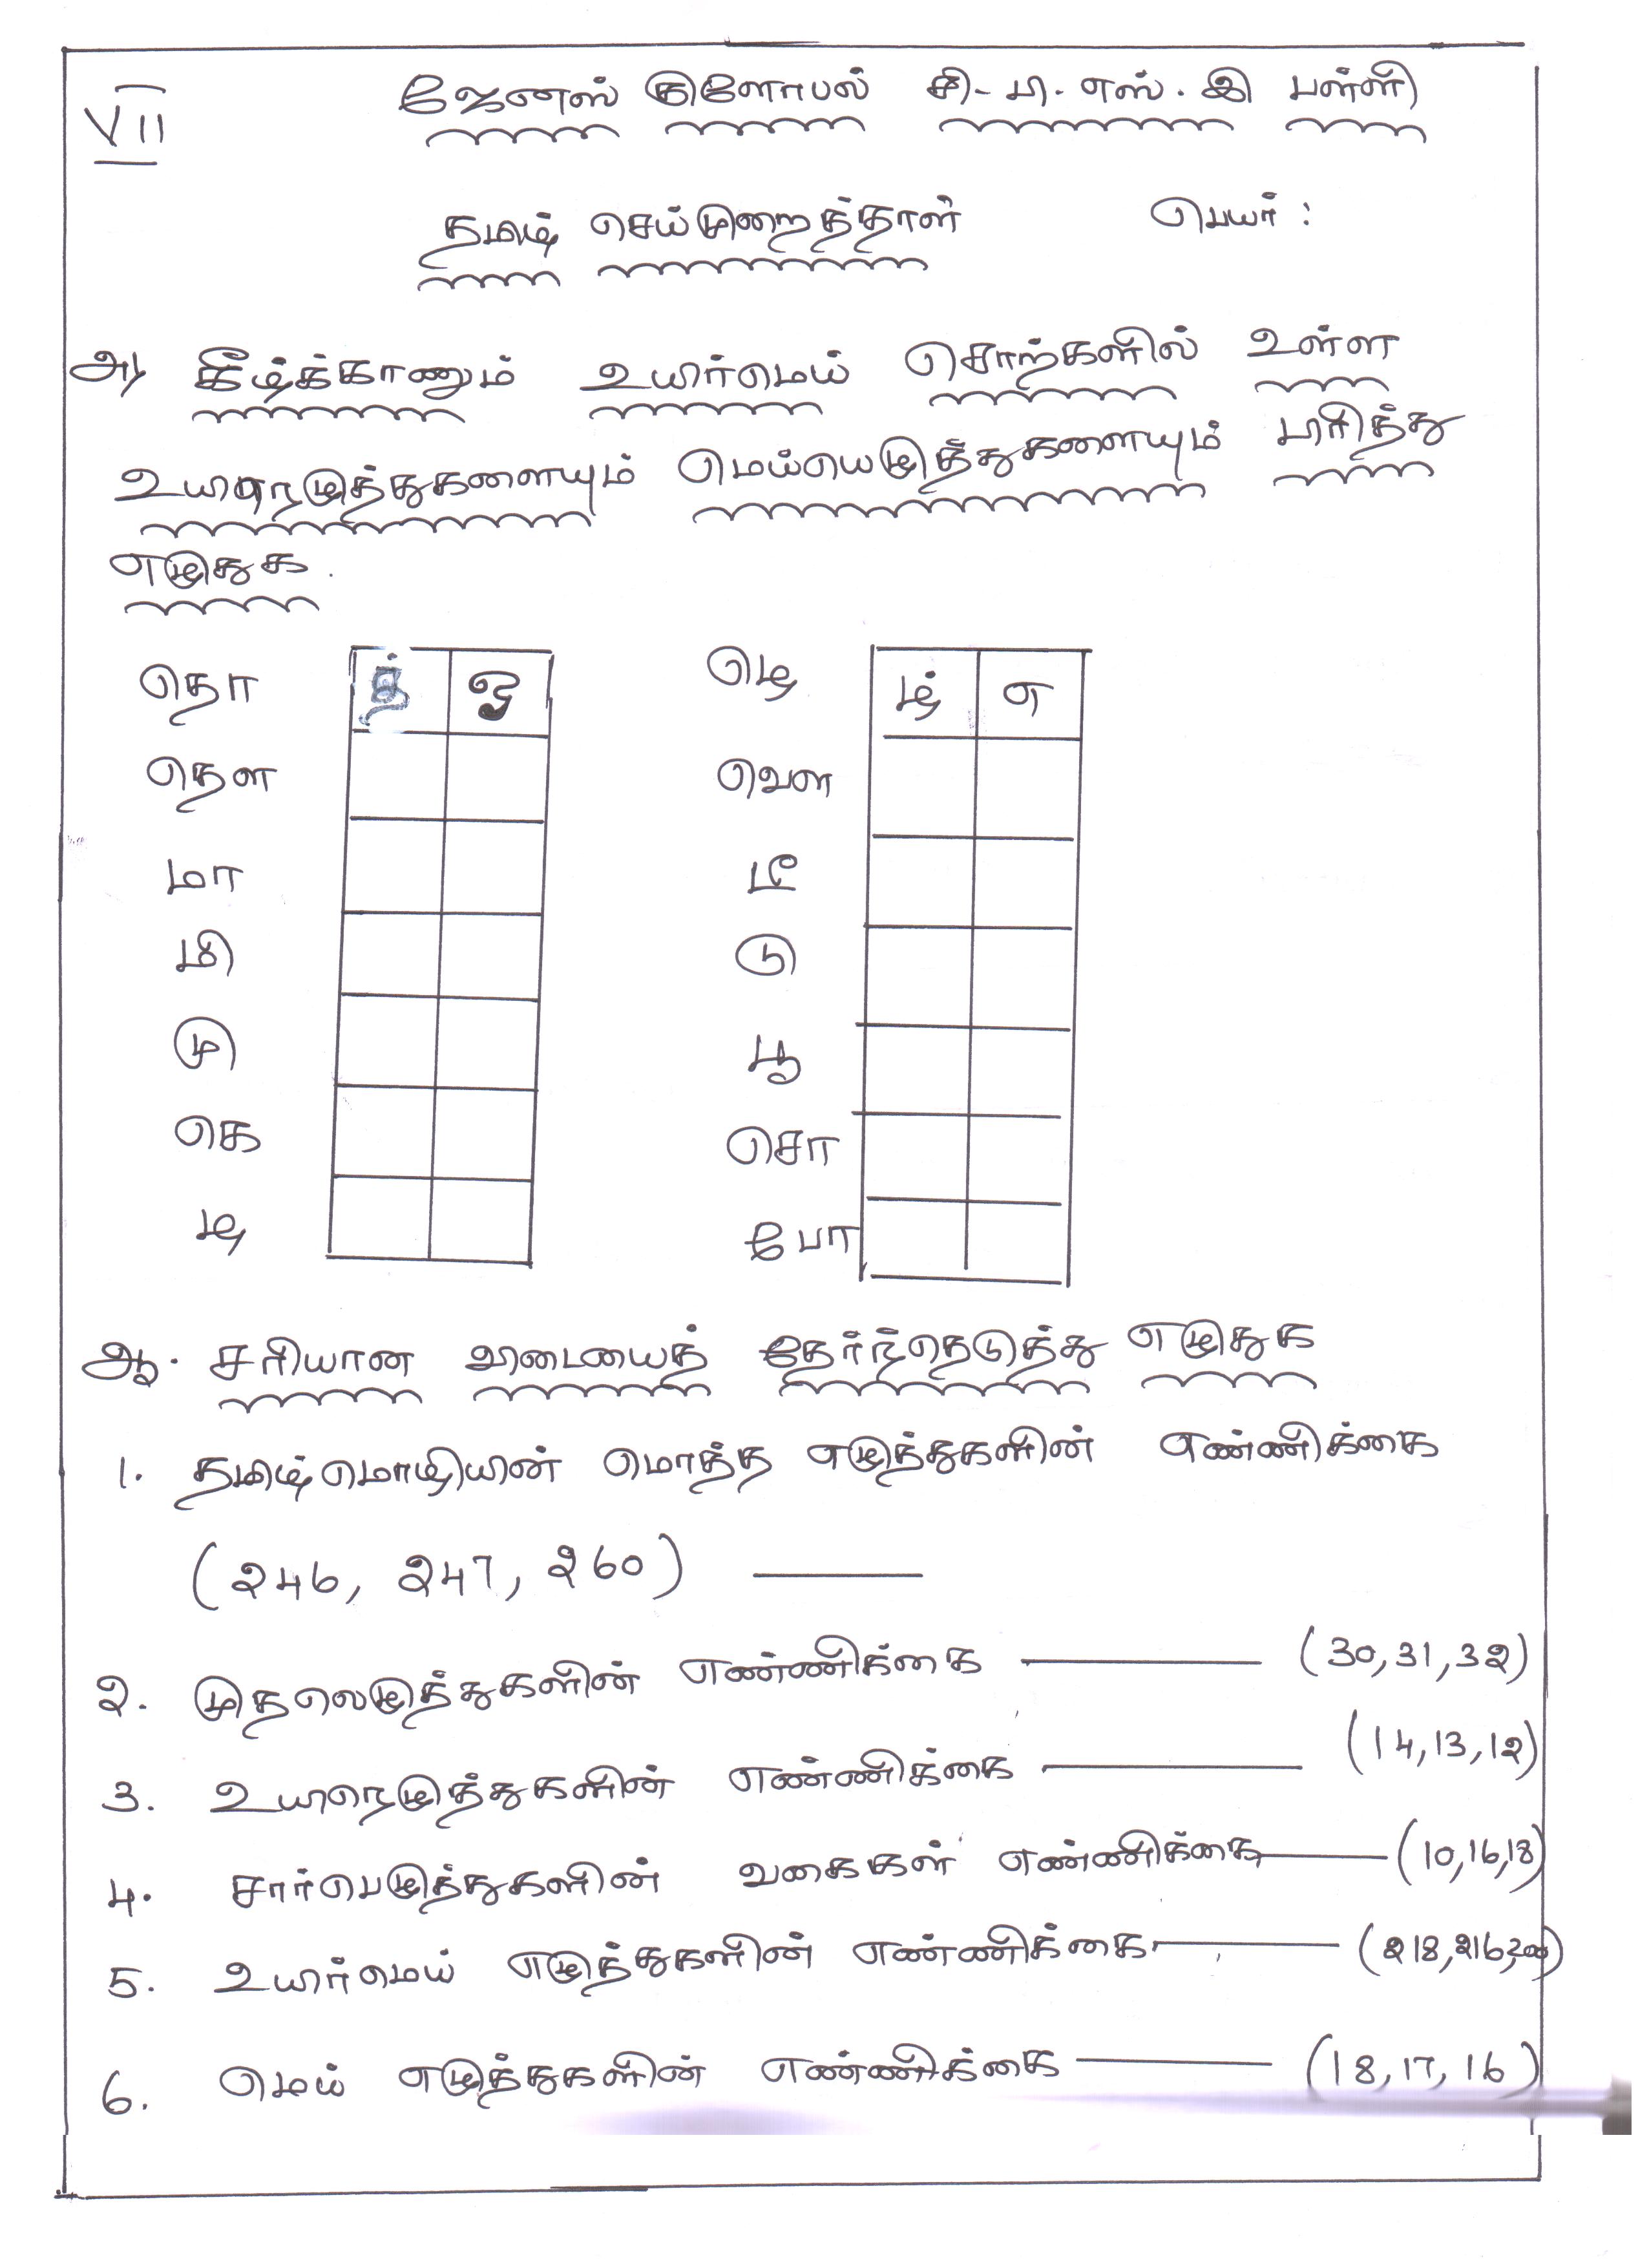 VII
ஜேனஸ் குளோபல் சி.பி.எஸ்.இ பள்ளி
தமிழ் செய்முறைத்தாள் பெயர் :
அ) கீழ்க்காணும் உயிர்மெய் சொற்களில் உள்ள
உயிரெழுத்துகளையும் மெய்யெழுத்துகளையும் பிரித்து
எழுதுக.
தொ த் ஒ ழெ ழ் எ
தௌ வௌ
மா டீ
மி டு
மு பூ
கெ சொ
ழ போ
ஆ. சரியான விடையைத் தேர்ந்தெடுத்து எழுதுக
1. தமிழ்மொழியின் மொத்த எழுத்துகளின் எண்ணிக்கை
(246, 247, 260) ———
2. முதலெழுத்துகளின் எண்ணிக்கை ——— (30,31,32)
3. உயிரெழுத்துகளின் எண்ணிக்கை ——— (14,13,12)
4. சார்பெழுத்துகளின் வகைகள் எண்ணிக்கை ——— (10,16,18)
5. உயிர்மெய் எழுத்துகளின் எண்ணிக்கை ——— (218,216,200)
6. மெய் எழுத்துகளின் எண்ணிக்கை ——— (18,17,16)